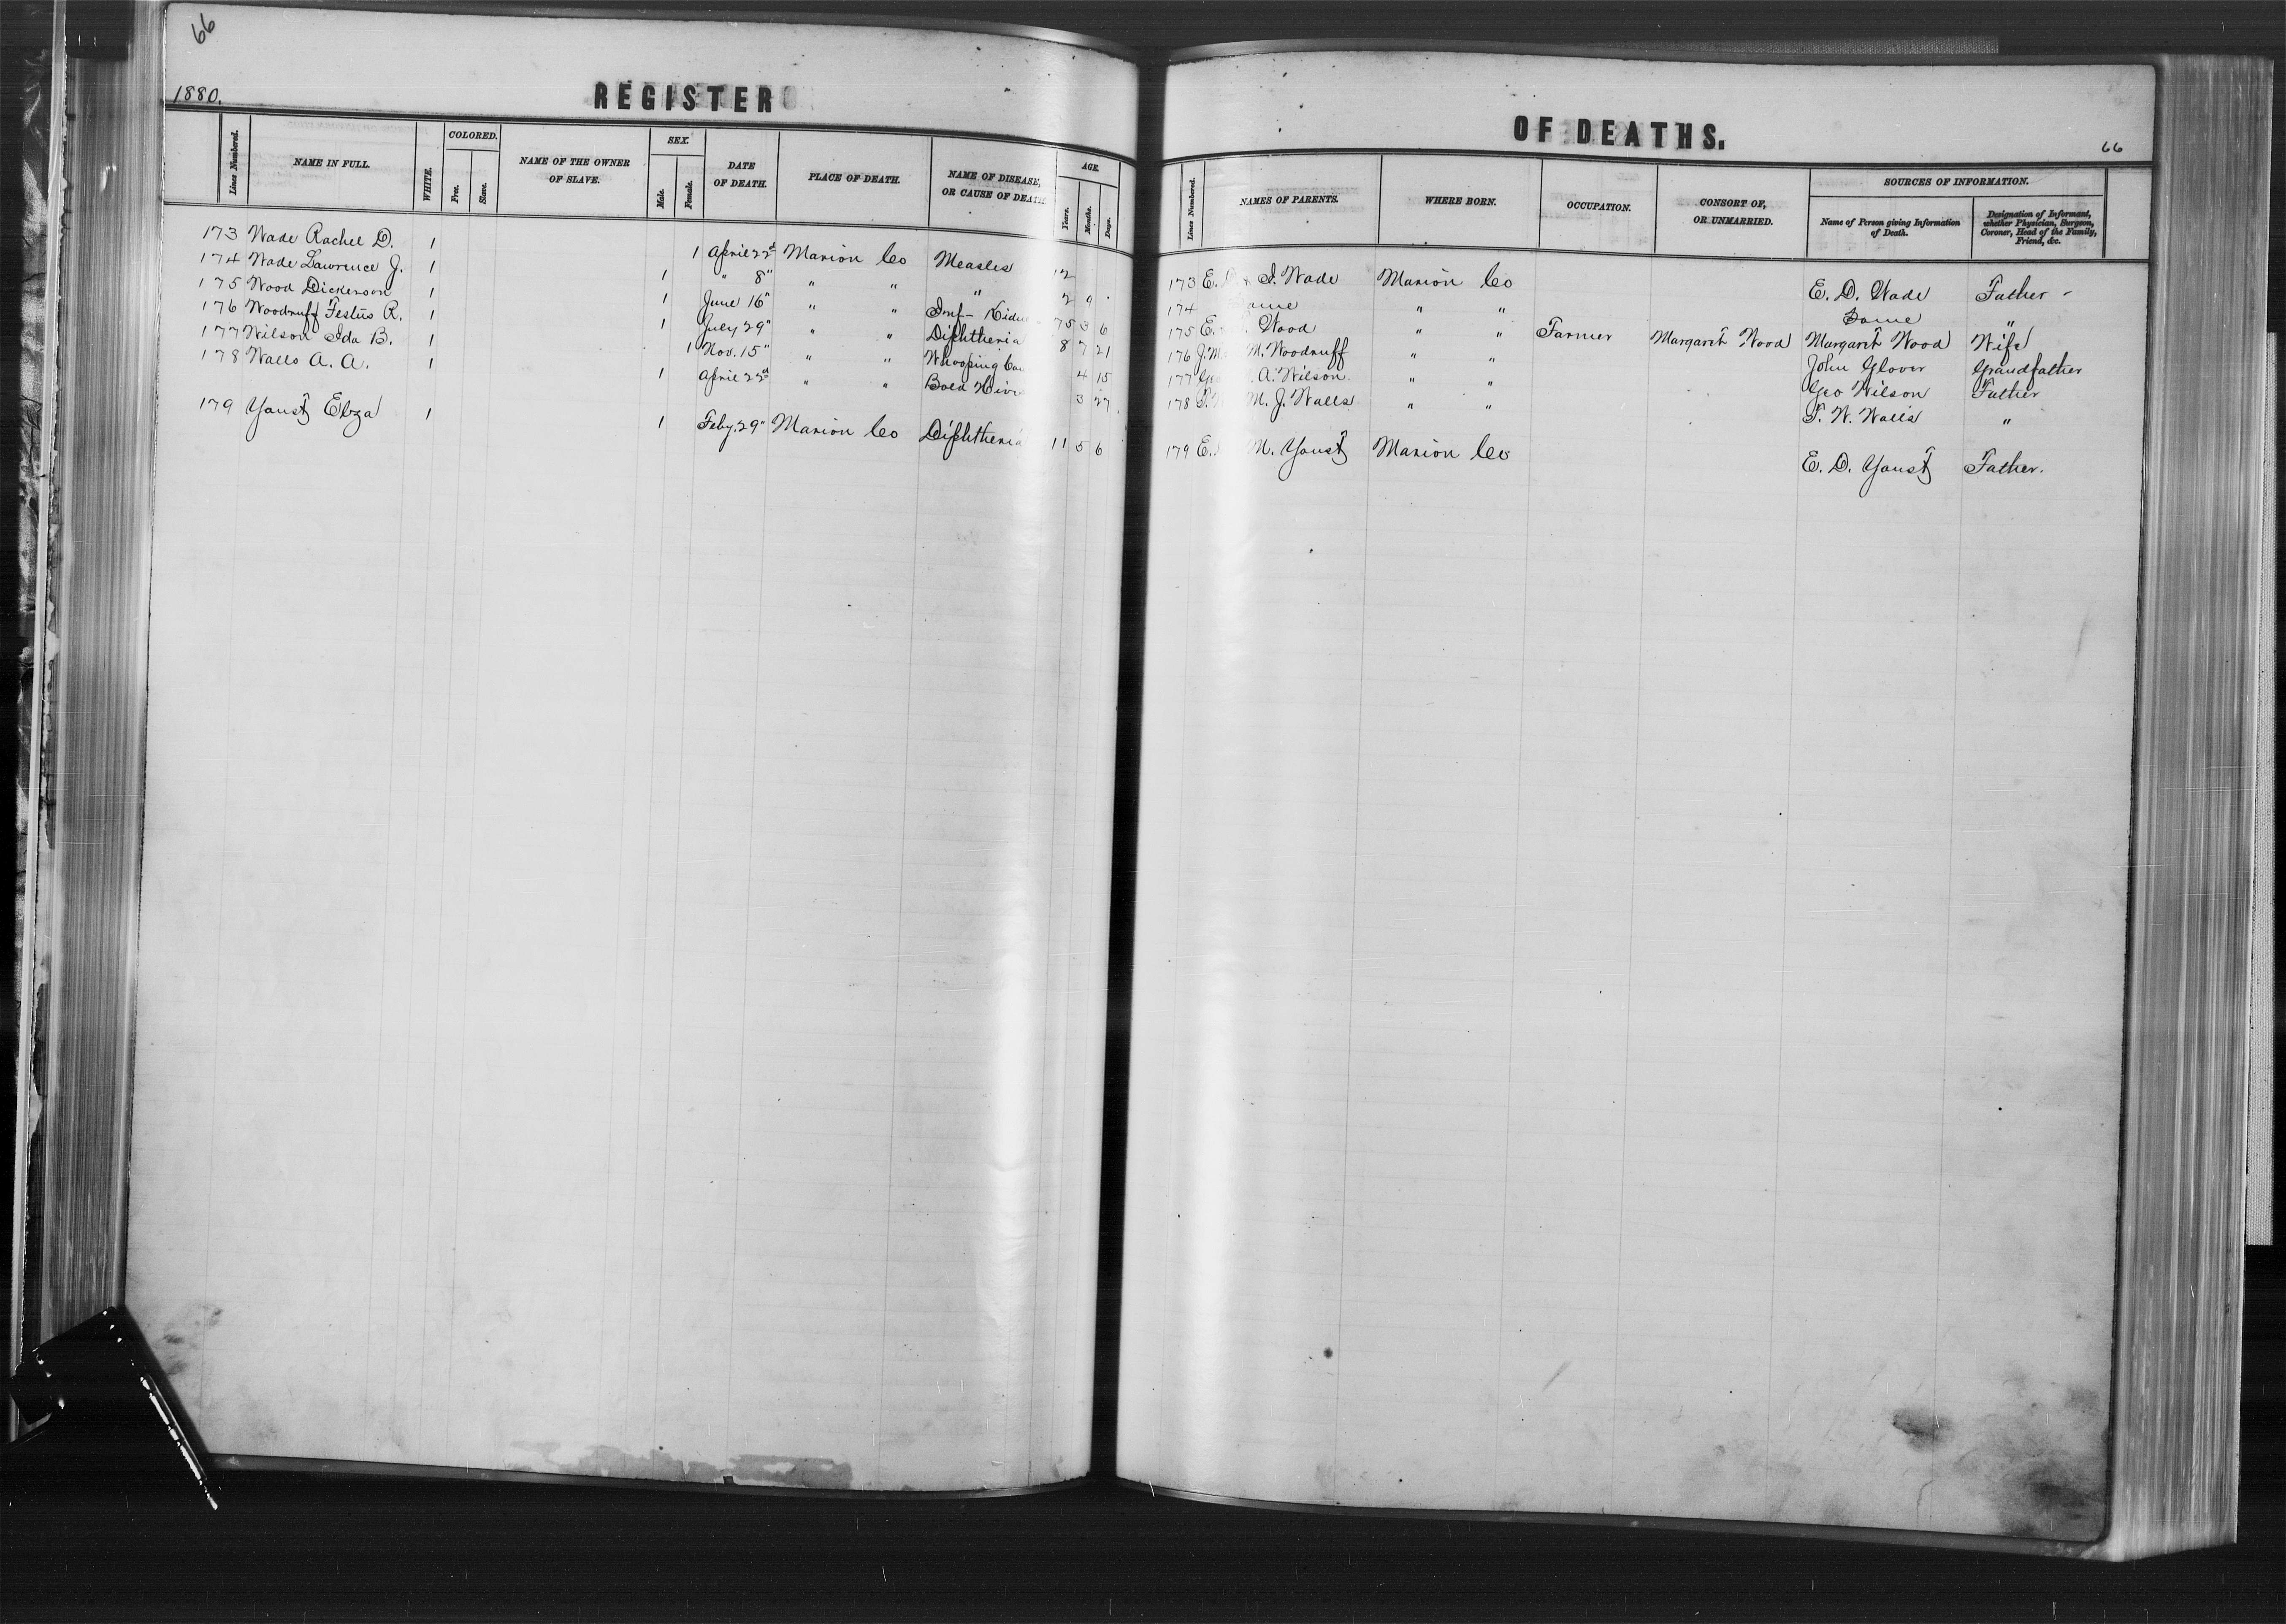 66
1880.
REGISTER
Lines Numbered.
NAME IN FULL.
WHITE.
COLORED.
Free.
Slave.
NAME OF THE OWNER
OF SLAVE.
SEX.
Male.
Female.
DATE
OF DEATH.
PLACE OF DEATH.
NAME OF DISEASE,
OR CAUSE OF DEATH
AGE.
Years.
Months.
Days.
173 Wade Rachel D. 1 1 April 22d Marion Co Measles 12
174 Wade Lawrence J. 1 1 " 8" " " " 2 9
175 Wood Dickerson 1 1 June 16" " " 75 3 6
176 Woodruff Festus R. 1 1 July 29" " " Diphtheria 8 7 21
177 Wilson Ida B. 1 1 Nov. 15" " " Whooping 4 15
178 Walls A. A. 1 1 April 22d " " Bold 3 27
179 Youst Ebza 1 1 Feby. 29" Marion Co Diphtheria 11 5 6
OF DEATHS.
66
Lines Numbered.
NAMES OF PARENTS.
WHERE BORN.
OCCUPATION.
CONSORT OF,
OR UNMARRIED.
SOURCES OF INFORMATION.
Name of Person giving Information
of Death.
Designation of Informant,
whether Physician, Surgeon,
Coroner, Head of the Family,
Friend, &c.
173 E. Wade Marion Co E. D. Wade Father
174 " " Same "
175 E. Wood " " Farmer Margaret Wood Margaret Wood Wife
176 M. Woodruff " " John Glover Grandfather
177 A. Wilson. " " Geo Wilson Father
178 M. J. Walls " " T. W. Walls "
179 E. M. Youst Marion Co E. D. Youst Father.